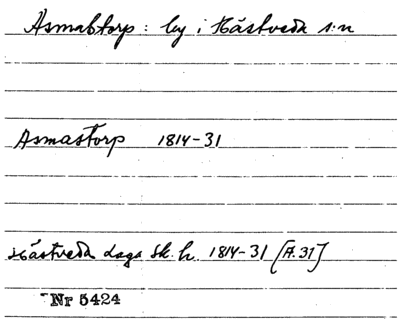 Asmabtorp: by i Hästveda s:n
Asmastorp 1814-31
Hästveda dags sk. h. 1814-31 [A.31]
Nr 5424